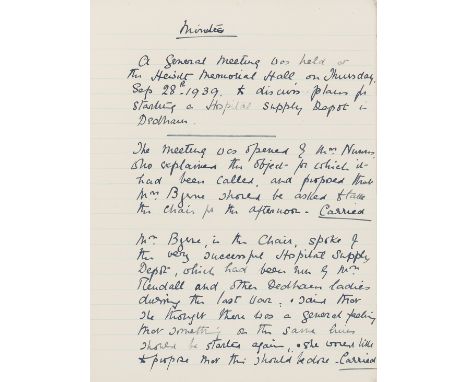 Minutes
A General Meeting was held at
the Hewitt Memorial Hall on Thursday.
Sep 28th 1939. to discuss plans for
starting a Hospital Supply Depot in
Dedham.
The meeting was opened by Mrs Nunn
who explained the object for which it
had been called, and proposed that
Mrs Byrne should be asked to take
the chair for the afternoon - Carried
Mrs Byrne, in the Chair, spoke of
the very successful Hospital Supply
Depot, which had been run by Mrs
Rendall and other Dedham ladies
during the last war: & said that
she thought there was a general feeling
that something on the same lines
should be started again, & she would like
to propose that this should be done - Carried